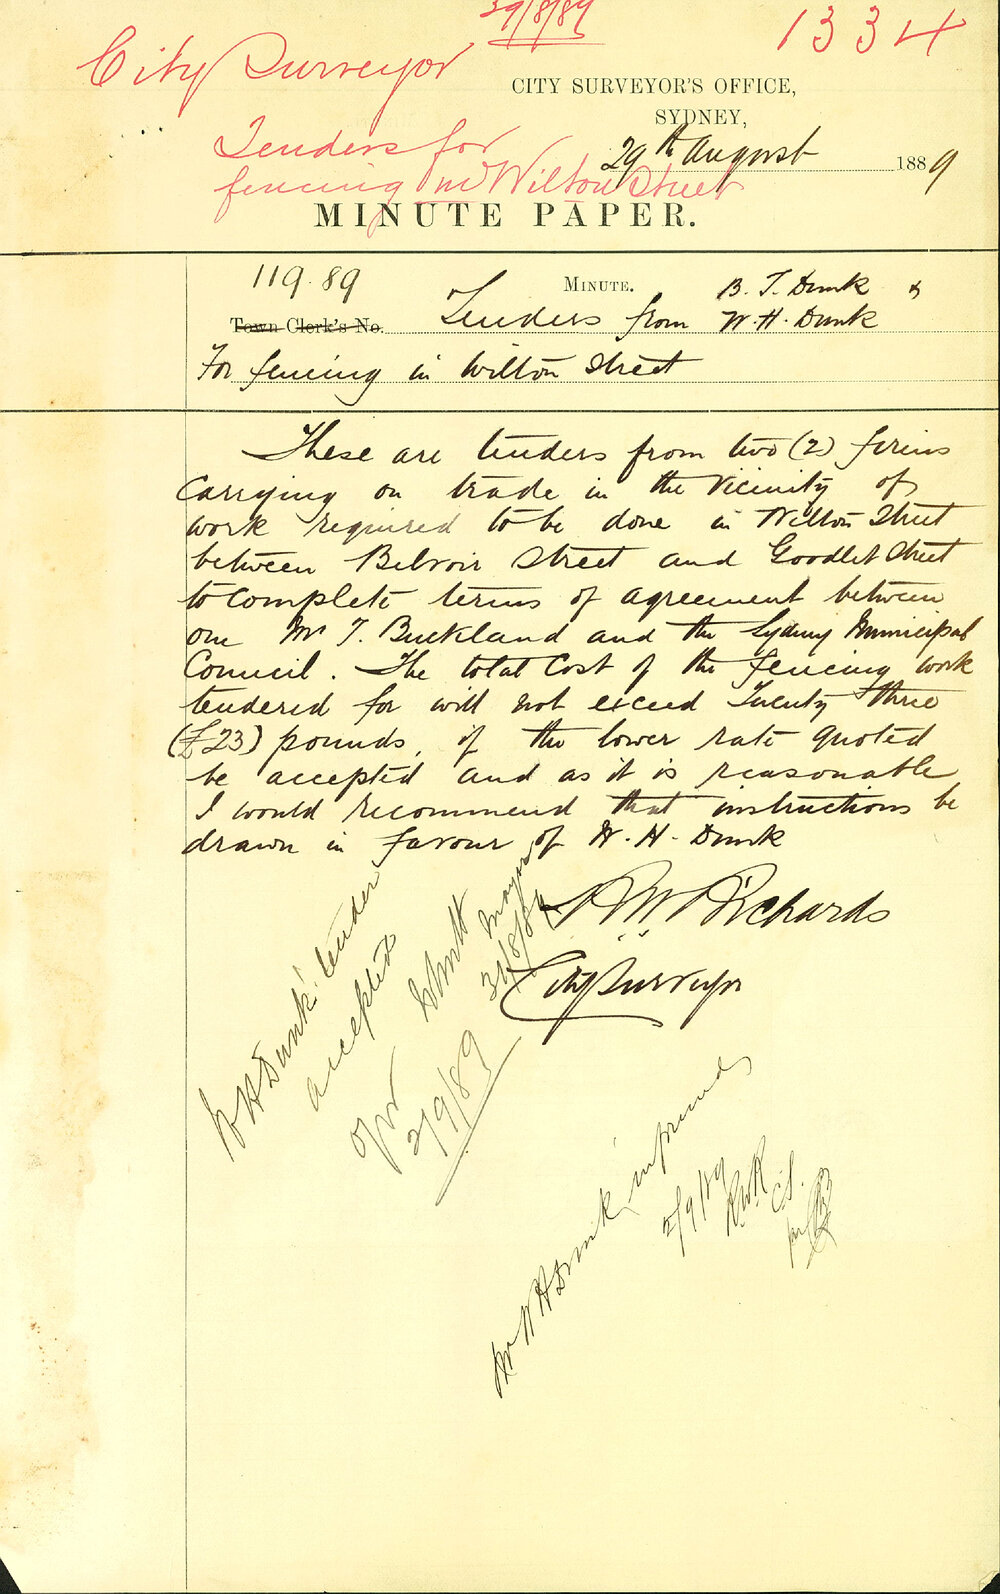 29/8/89
1334
City Surveyor
CITY SURVEYOR'S OFFICE,
SYDNEY,
Tenders for
29th August 1889
fencing in Wilton Street
MINUTE PAPER.
119.89
MINUTE.
B. T. Dunk &
Town Clerk's No.
Tenders from W. H. Dunk
For fencing in Wilton Street
These are tenders from two (2) firms
carrying on trade in the vicinity of
work required to be done in Wilton Street
between Belvoir Street and Goodlet Street
to complete terms of agreement between
one Mr T. Buckland and the Sydney Municipal
Council. The total cost of the fencing work
tendered for will not exceed Twenty three
(£23) pounds, if the lower rate quoted
be accepted and as it is reasonable
I would recommend that instructions be
drawn in favour of W. H. Dunk
Richards
City Surveyor
W H Dunk' tender
accepted
Mayor
31/8/89
2/9/89
Mr W H Dunk informed
2/9/89
RWR
CS.